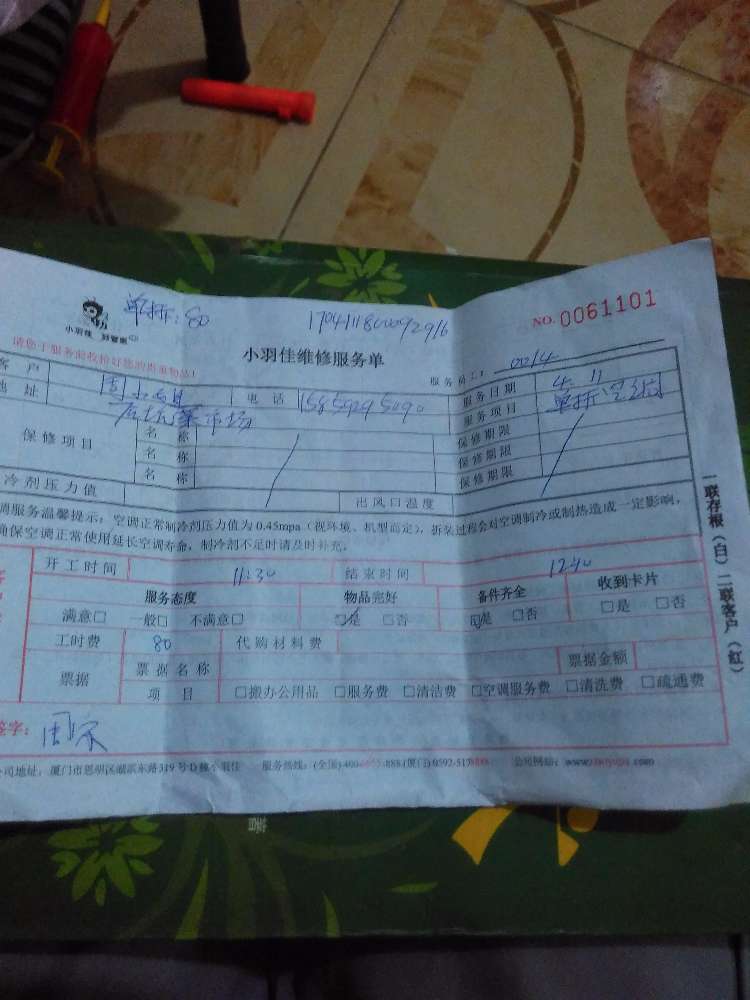 单拆:80
17041180009 2916
NO. 0061101
小羽佳
请您于服务前收拾好您的贵重物品!
小羽佳维修服务单
服务员工: 0014
客 户 电 话 服务日期 4. 11
地 址 菜市场 服务项目 单拆空调
保修项目 名 称 保修期限
名 称 保修期限
名 称 保修期限
冷剂压力值 出风口温度
调服务温馨提示:空调正常制冷剂压力值为 0.45mpa(视环境、机型而定),拆装过程会对空调制冷或制热造成一定影响,
确保空调正常使用延长空调寿命,制冷剂不足时请及时补充。
开工时间 11:30 结束时间 12:10
服务态度 物品完好 备件齐全 收到卡片
满意□ 一般□ 不满意□ ☑是 □否 ☑是 □否 □是 □否
工时费 80 代购材料费
票据 票据名称 票据金额
项 目 □搬办公用品 □服务费 □清洁费 □空调服务费 □清洗费 □疏通费
签字:
公司地址:厦门市思明区湖滨东路319号D栋 服务热线:(全国)400 888 (厦门)0592-5178888 公司网站:
一联存根(白)二联客户(红)